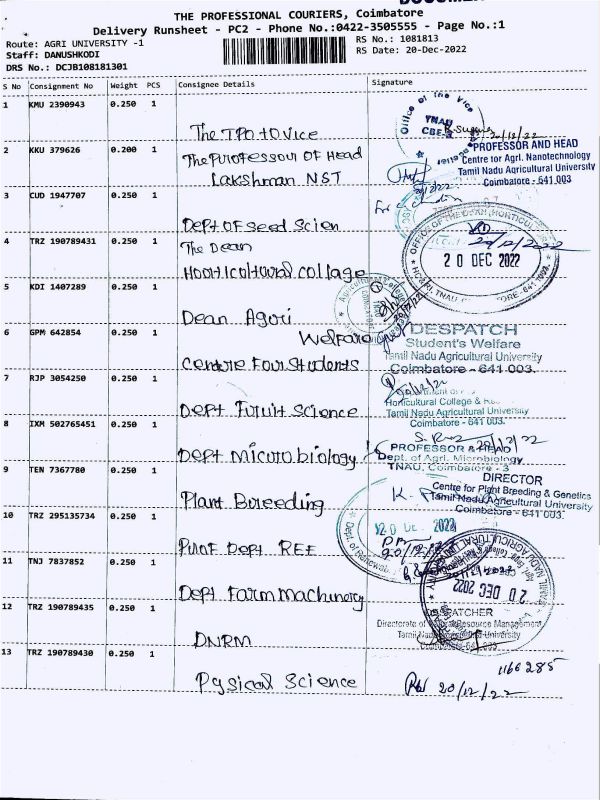 THE PROFESSIONAL COURIERS, Coimbatore
Delivery Runsheet - PC2 - Phone No.:0422-3505555 - Page No.:1
Route: AGRI UNIVERSITY -1
RS No.: 1081813
Staff: DANUSHKODI
RS Date: 20-Dec-2022
DRS No.: DCJB108181301
S No Consignment No Weight PCS Consignee Details Signature
1 KMU 2390943 0.250 1
The TPO to Vice
Office of the Vice
TNAU
CBE-3
20/12/22
2 KKU 379626 0.200 1
The Purofessour OF Head
Lakshman NST
PROFESSOR AND HEAD
Centre for Agrl. Nanotechnology
Tamil Nadu Agricultural University
Coimbatore - 641 003
3 CUD 1947707 0.250 1
Dept OF Seed Scien
For
4 TRZ 190789431 0.250 1
The Dean
Hourticultural collage
OFFICE OF THE DEAN, HORTICUL
20 DEC 2022
5 KDI 1407289 0.250 1
Dean Aguri
Agricultural College
6 GPM 642854 0.250 1
Welfare
Centre Four Students
DESPATCH
Student's Welfare
Tamil Nadu Agricultural University
Coimbatore - 641 003.
7 RJP 3054250 0.250 1
Dept Furuit Science
Horticultural College &
Tamil Nadu Agricultural University
Coimbatore - 641 003.
8 IXM 502765451 0.250 1
Dept Micuro biology
20/12/22
PROFESSOR & HEAD
Dept. of Agrl. Microbiology
TNAU, Coimbatore - 3
9 TEN 7367780 0.250 1
Plant Bureeding
DIRECTOR
Centre for Plant Breeding & Genetics
Tamil Nadu Agricultural University
Coimbatore - 641 003.
10 TRZ 295135734 0.250 1
Purof Dept REE
Dept. of Renewal
20 DE 2022
20/12/22
11 TNJ 7837852 0.250 1
Dept Farm Machinery
20 DEC 2022
12 TRZ 190789435 0.250 1
DNRM
Directorate of Natural Resource Management
Tamil Nadu University
13 TRZ 190789430 0.250 1
Pysical Science
1166285
20/12/22